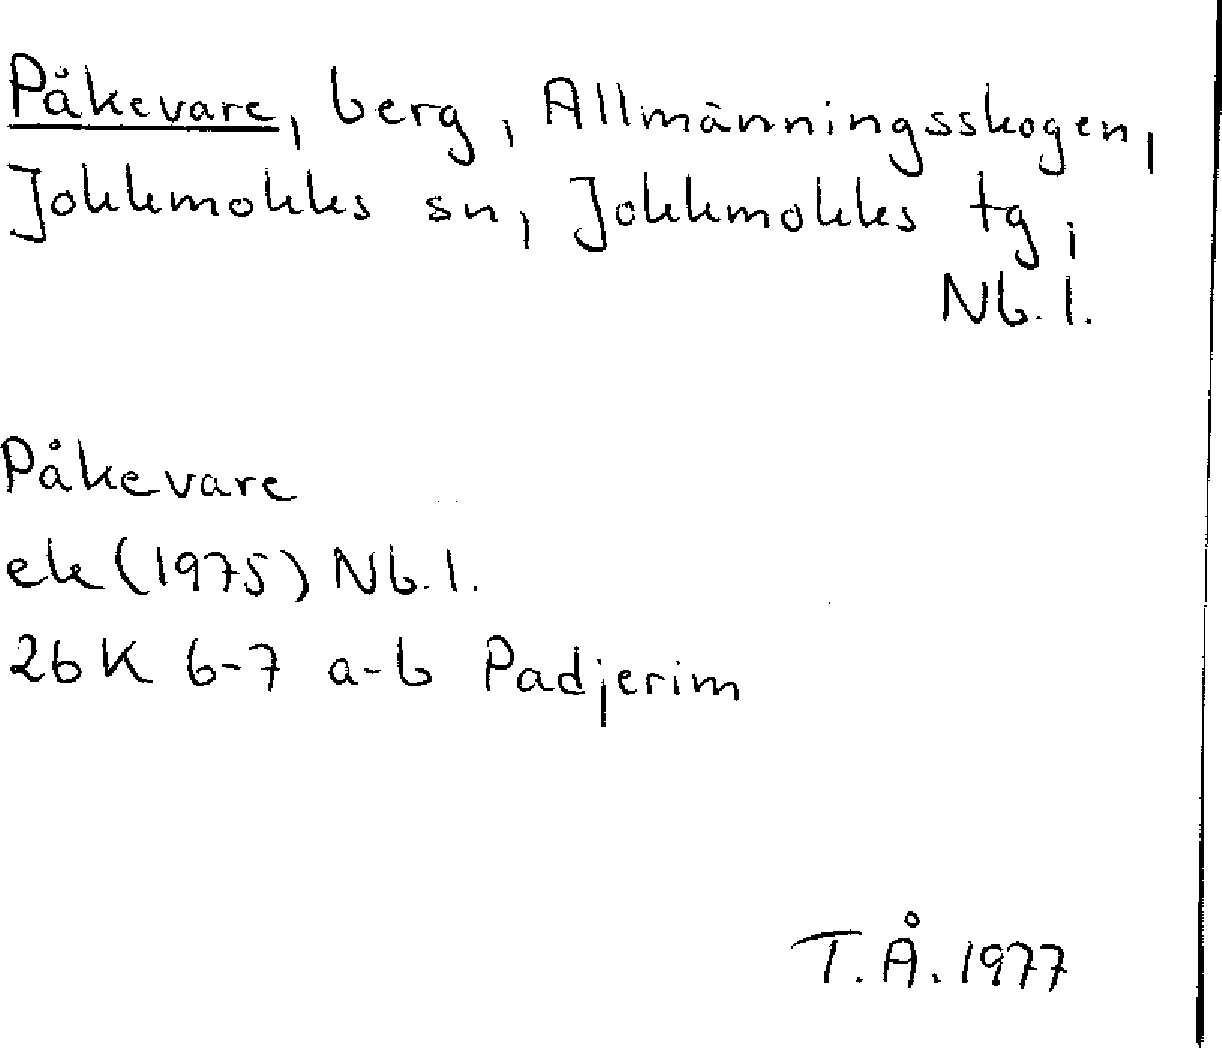 Påkevare, berg, Allmänningsskogen,
Jokkmokks sn, Jokkmokks tg,
Nb. l.
Påkevare
ek (1975) Nb. l.
26 K 6-7 a-b Padjerim
T. Å. 1977